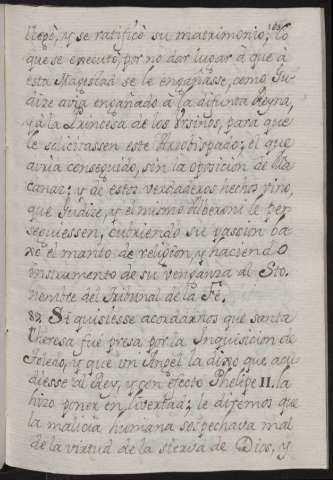 llegò, y se ratificò su matrimonio; lo
que se executò, por no dar lugar à que à
esta Magestad se le engañasse, como Ju-
dize avia engañado à la difunta Reyna,
y à la Princesa de los Ursinos, para que
le solicitassen este Arzobispado; el que
avria conseguido, sin la oposicion de Ma-
canaz; y de estos verdaderos hechos vino,
que Judize, y el mismo Alberoni le per-
seguiessen, cubriendo su passion ba-
xo el manto de religion, y haciendo
instrumento de su venganza al Sto.
nombre del Tribunal de la Fè.
89. Si quisiesse acordarnos que santa
Theresa fue presa por la Inquisicion de
Toledo, y que un Angel la dixo que acu-
diesse al Rey, y con efecto Phelipe II. la
hizo poner en livertad; le diremos que
la malicia humana sospechava mal
de la virtud de la sierva de Dios, y